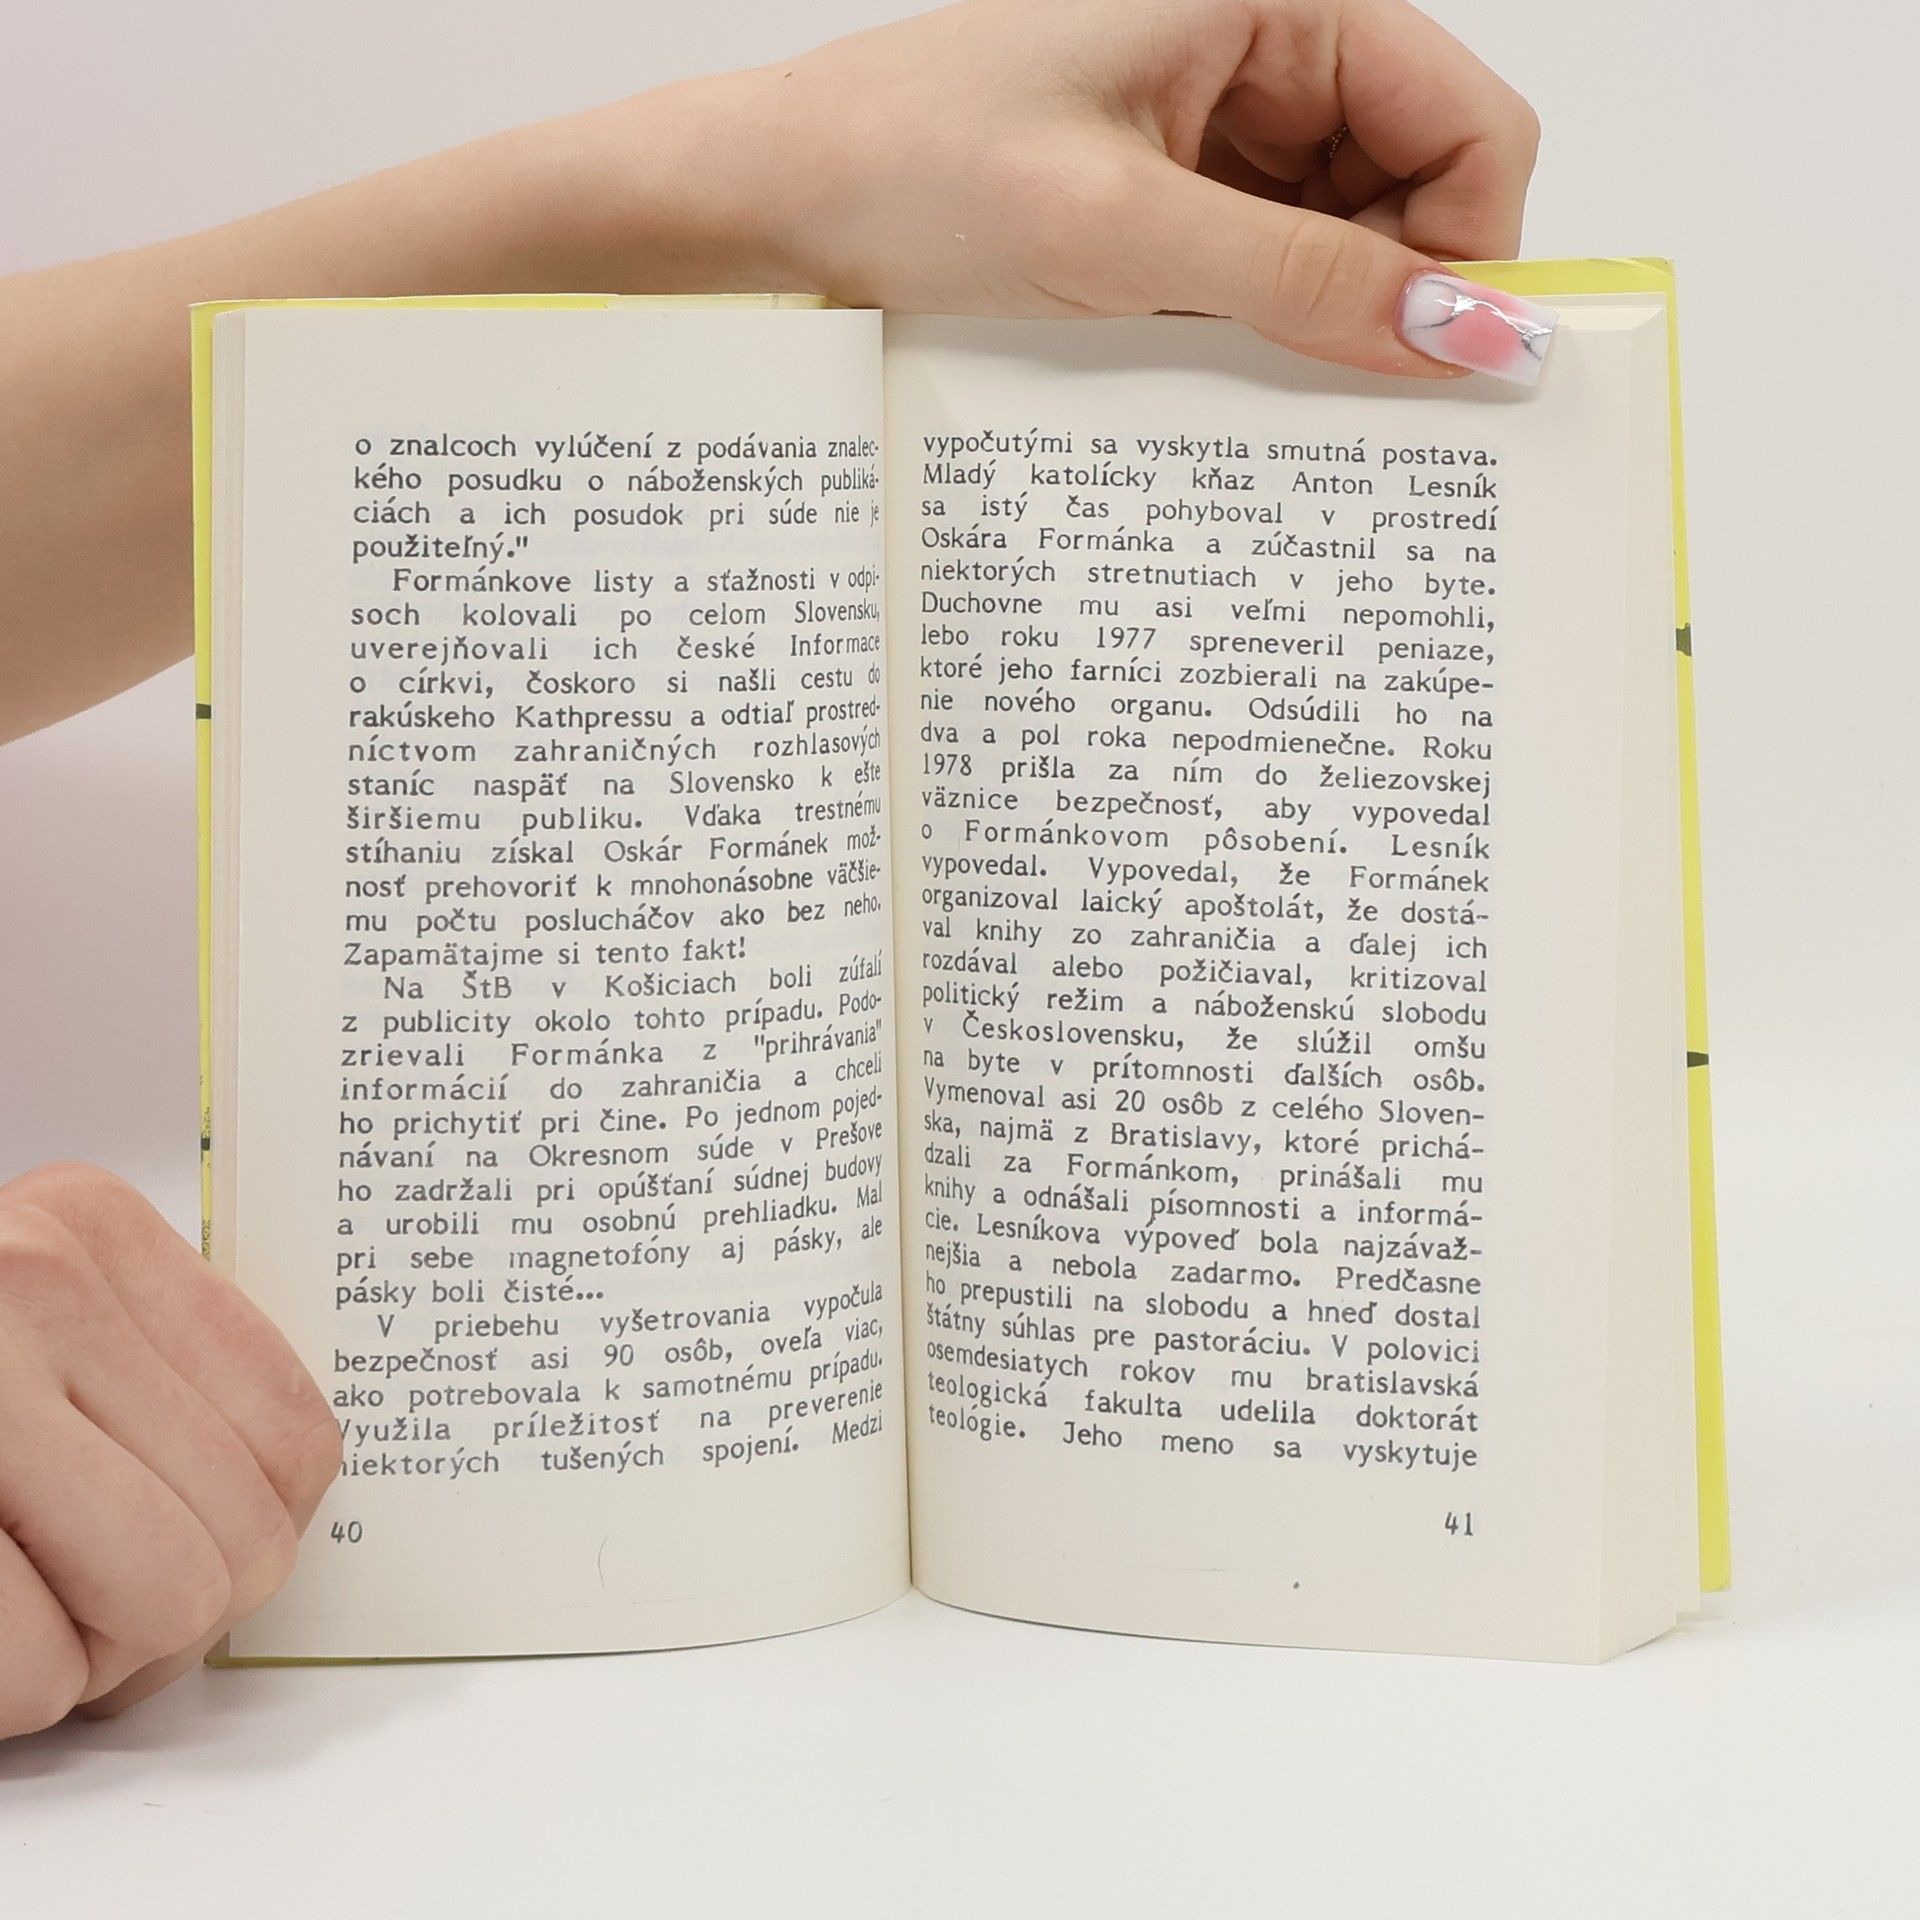 o znalcoch vylúčení z podávania znalec-
kého posudku o náboženských publiká-
ciách a ich posudok pri súde nie je
použiteľný."
Formánkove listy a sťažnosti v odpi-
soch kolovali po celom Slovensku,
uverejňovali ich české Informace
o církvi, čoskoro si našli cestu do
rakúskeho Kathpressu a odtiaľ prostred-
níctvom zahraničných rozhlasových
staníc naspäť na Slovensko k ešte
širšiemu publiku. Vďaka trestnému
stíhaniu získal Oskár Formánek mož-
nosť prehovoriť k mnohonásobne väčšie-
mu počtu poslucháčov ako bez neho.
Zapamätajme si tento fakt!
Na ŠtB v Košiciach boli zúfalí
z publicity okolo tohto prípadu. Podo-
zrievali Formánka z "prihrávania"
informácií do zahraničia a chceli
ho prichytiť pri čine. Po jednom pojed-
návaní na Okresnom súde v Prešove
ho zadržali pri opúšťaní súdnej budovy
a urobili mu osobnú prehliadku. Mal
pri sebe magnetofóny aj pásky, ale
pásky boli čisté...
V priebehu vyšetrovania vypočula
bezpečnosť asi 90 osôb, oveľa viac,
ako potrebovala k samotnému prípadu.
Využila príležitosť na preverenie
niektorých tušených spojení. Medzi
40
vypočutými sa vyskytla smutná postava.
Mladý katolícky kňaz Anton Lesník
sa istý čas pohyboval v prostredí
Oskára Formánka a zúčastnil sa na
niektorých stretnutiach v jeho byte.
Duchovne mu asi veľmi nepomohli,
lebo roku 1977 spreneveril peniaze,
ktoré jeho farníci zozbierali na zakúpe-
nie nového organu. Odsúdili ho na
dva a pol roka nepodmienečne. Roku
1978 prišla za ním do želiezovskej
väznice bezpečnosť, aby vypovedal
o Formánkovom pôsobení. Lesník
vypovedal. Vypovedal, že Formánek
organizoval laický apoštolát, že dostá-
val knihy zo zahraničia a ďalej ich
rozdával alebo požičiaval, kritizoval
politický režim a náboženskú slobodu
v Československu, že slúžil omšu
na byte v prítomnosti ďalších osôb.
Vymenoval asi 20 osôb z celého Sloven-
ska, najmä z Bratislavy, ktoré prichá-
dzali za Formánkom, prinášali mu
knihy a odnášali písomnosti a informá-
cie. Lesníkova výpoveď bola najzávaž-
nejšia a nebola zadarmo. Predčasne
ho prepustili na slobodu a hneď dostal
štátny súhlas pre pastoráciu. V polovici
osemdesiatych rokov mu bratislavská
teologická fakulta udelila doktorát
teológie. Jeho meno sa vyskytuje
41